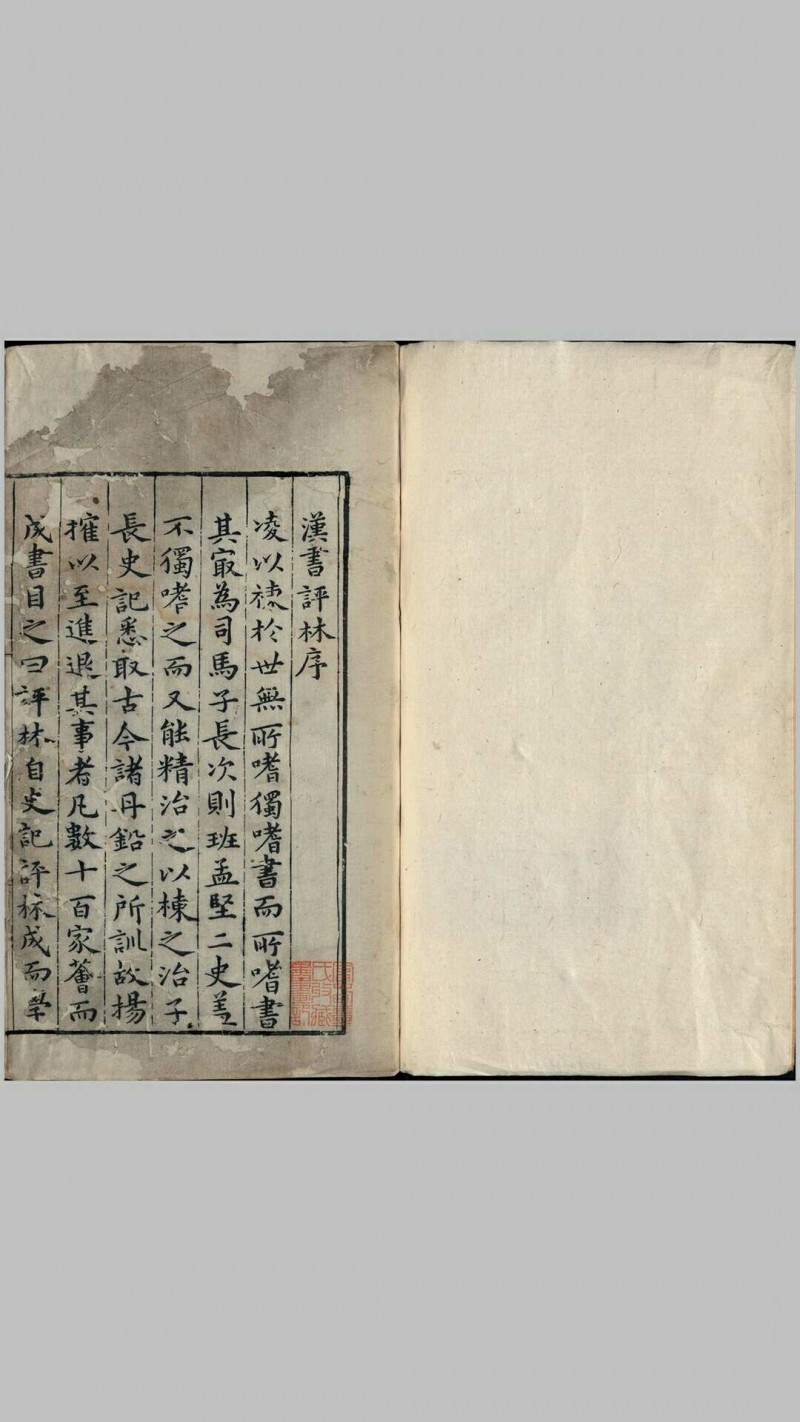 漢書評林序
凌以棟於世無所嗜獨嗜書而所嗜書
其寂為司馬子長次則班孟堅二史葢
不獨嗜之而又能精治之以棟之治子
長史記悉取古今諸丹鉛之所訓故揚
搉以至進退其事者凡數十百家薈而
成書目之曰評林自史記評林成而學